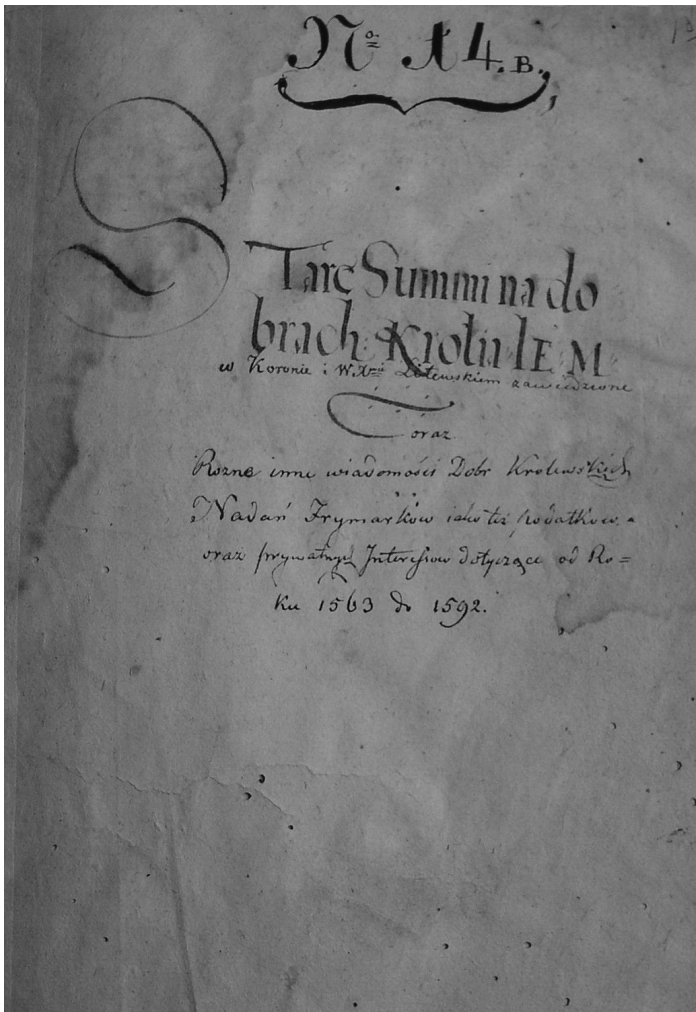 No 14. B.
STare Summi na do
brach Krolu IE M
w Koronie i W. Xwie Litewskiem zawiedzione
oraz
Rozne inne wiadomości Dobr Królewskich
Nadań Frymarków iako też podatkow.
oraz prywatnych Interessow dotyczące od Ro=
ku 1563 do 1592.